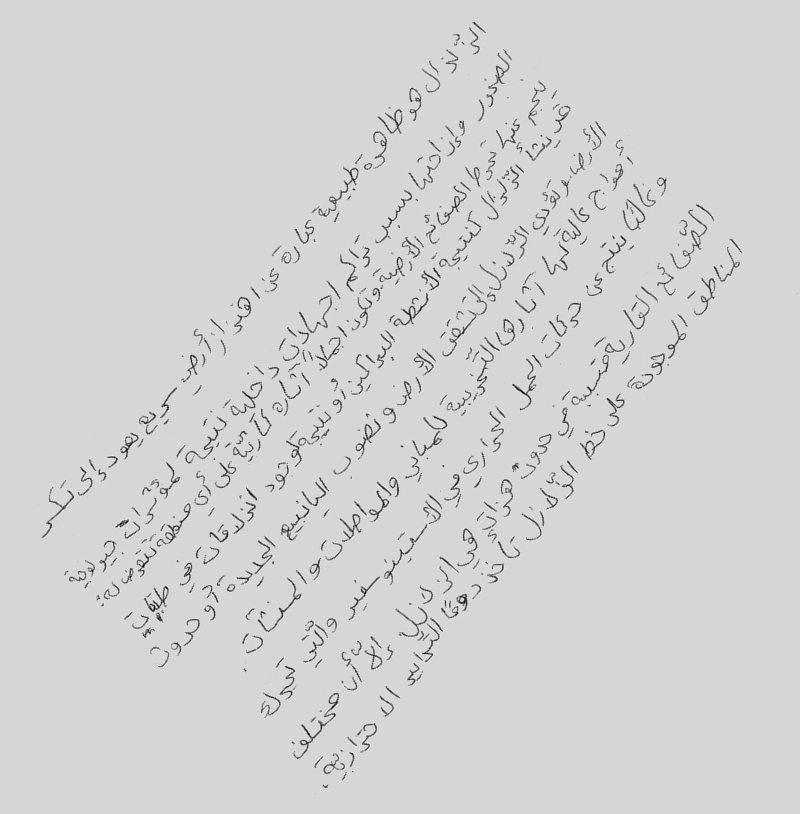 الزّلزال هو ظاهرة طبيعية عبارة عن اهتزاز أرضي سريع يعود إلى تكسر
الصخور وإزاحتها بسبب تراكم اجهادات داخلية نتيجة لمؤثرات جيولوجية
ينجم عنها تحرك الصفائح الأرضية وتكون اجمالا آثاره كارثية على أي منطقة تتعرض له:
قد ينشأ الزّلزال كنتيجة لأنشطة البراكين أو نتيجة لوجود انزلاقات في طبقات
الأرض، وتؤدي الزّلازل إلى تشقق الأرض ونضوب الينابيع الجديدة أو حدوث
أمواج عالية لها آثارها التّخريبية للمباني والمواصلات والمنشآت.
وغالبًا ينتج عن حركات الحمل الحراري في الأستينوسفير والّتي تحرك
الصّفائح القارية متسببة في حدوث هزات هي الزلازل إلاّ أن مختلف
المناطق الموجودة على خط الزّلازل تأخذ دومًا التدابير الاحترازية.